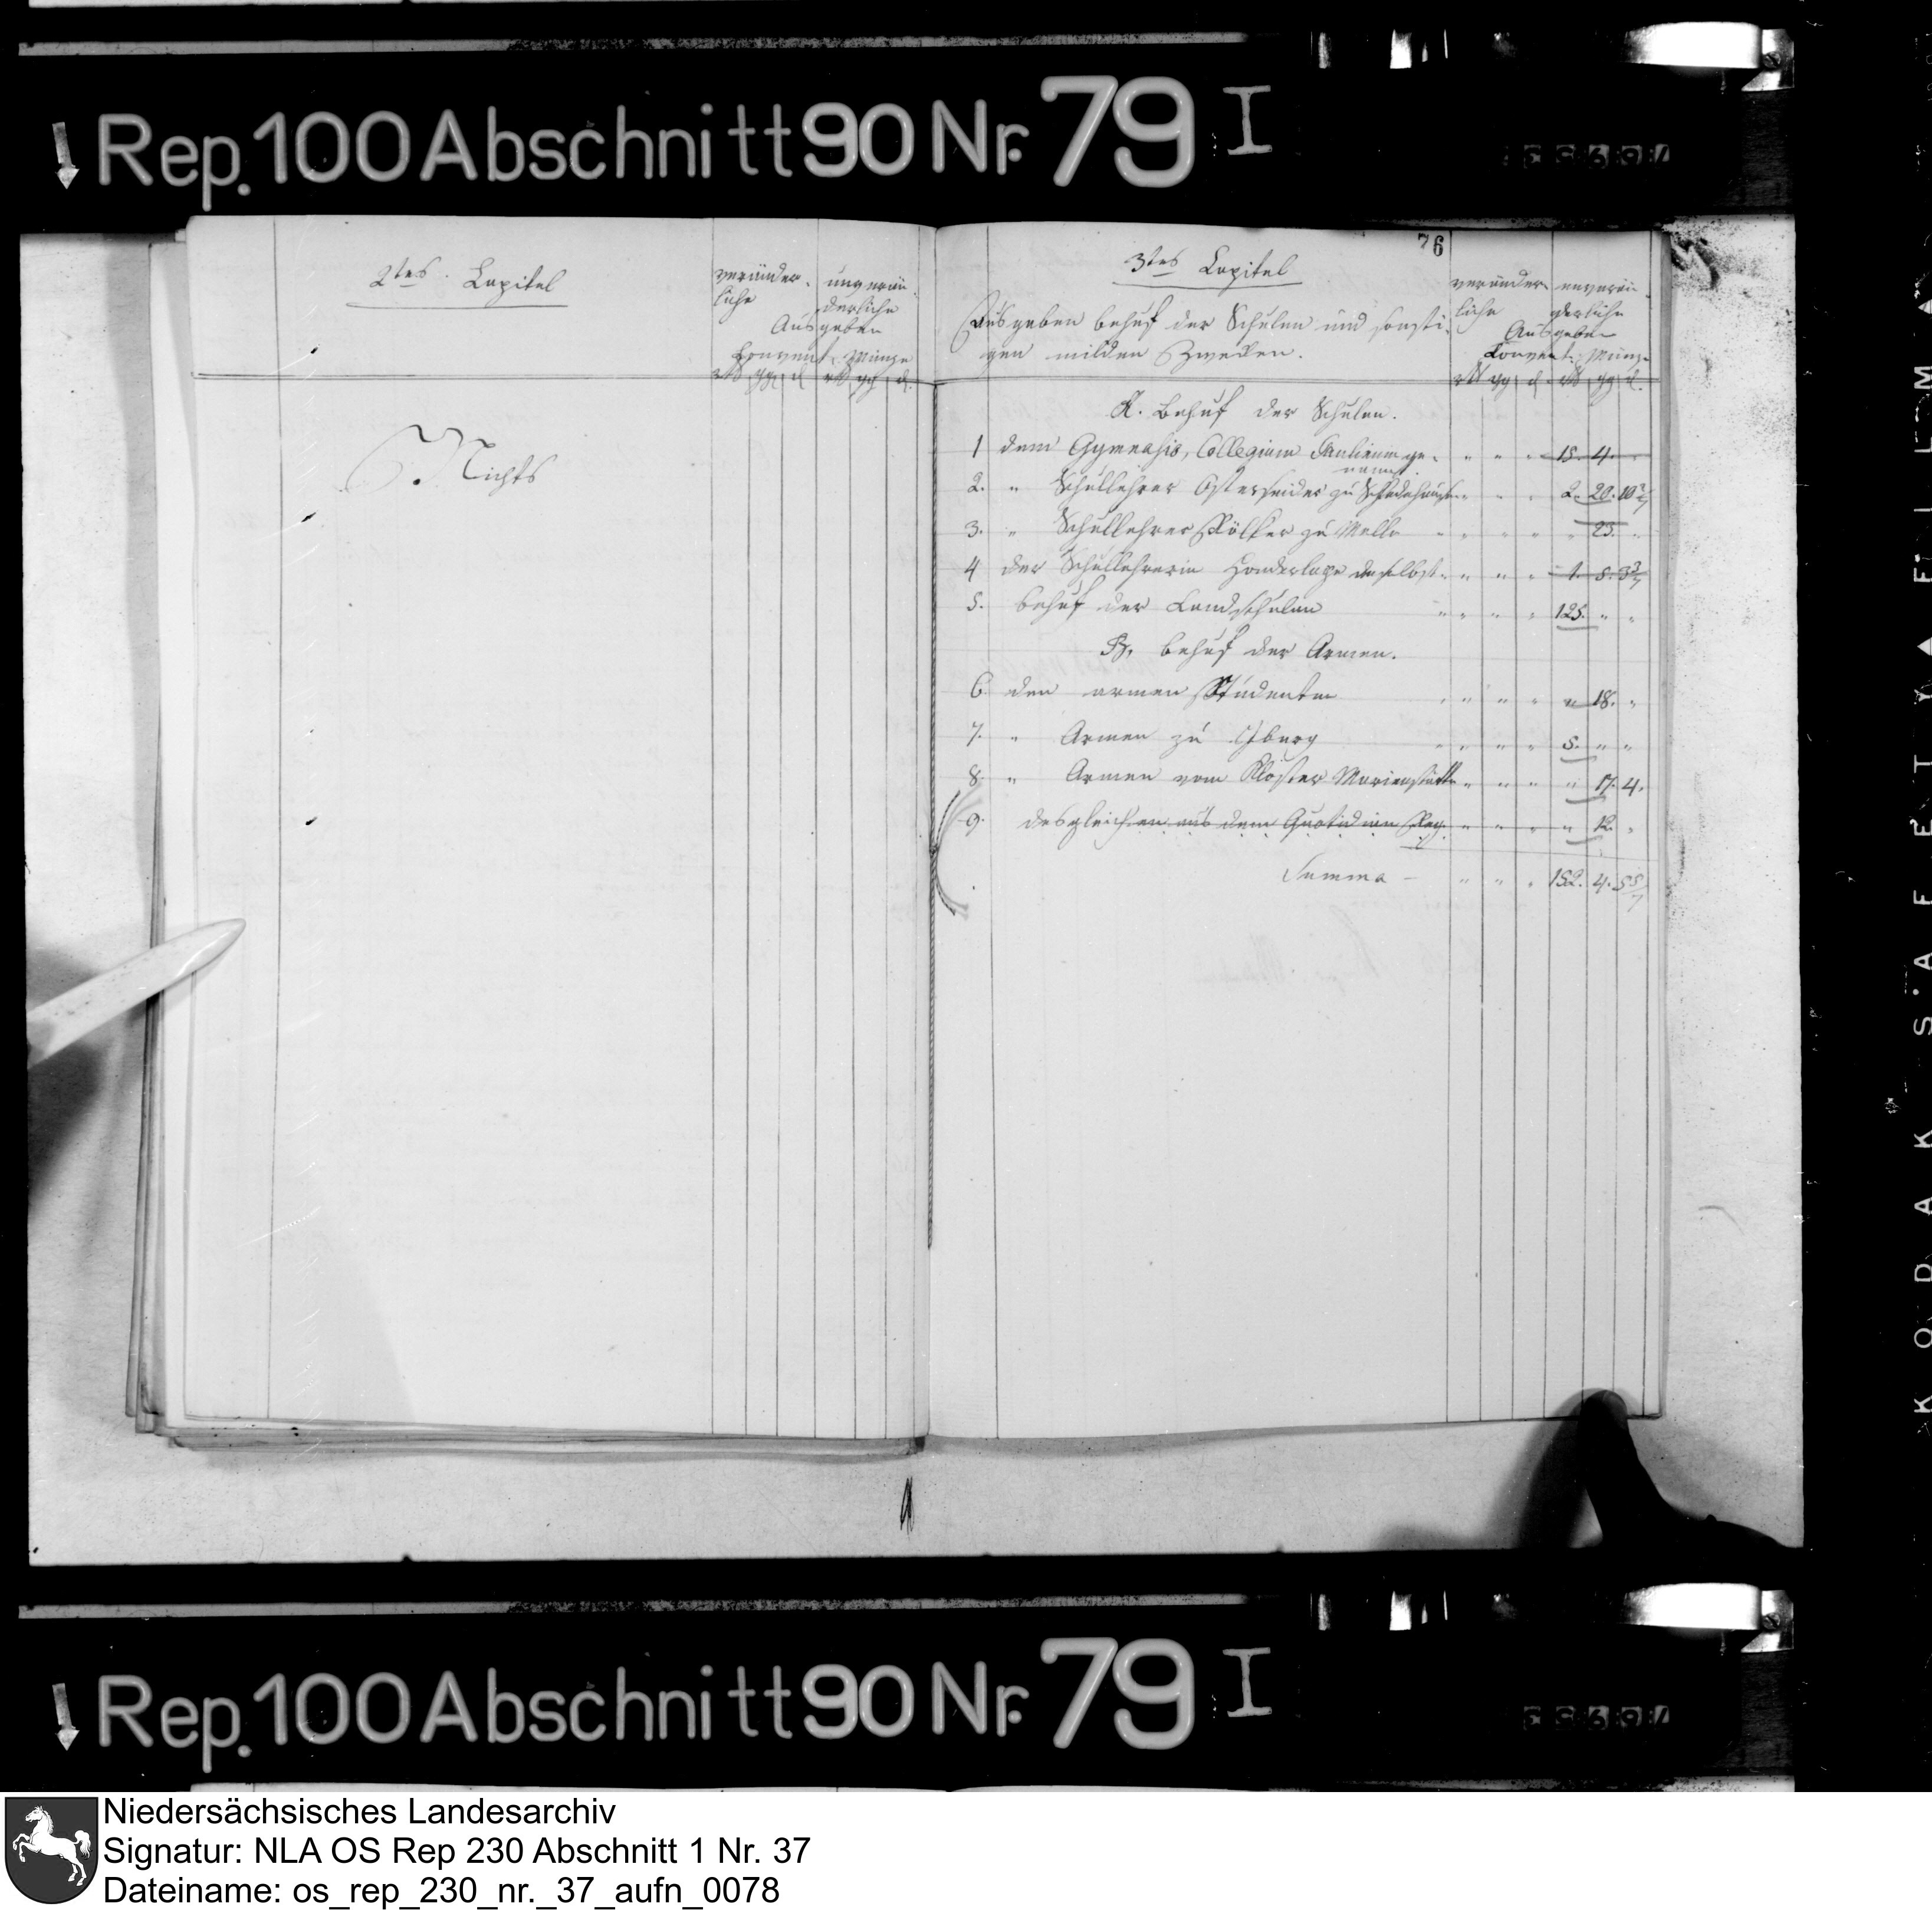 Rep. 100 Abschnitt 90 Nr. 79 I
2tes Capitel
veränder-
liche
unverän-
derliche
Ausgaben
Convent. Münze
rtl ggl d rtl ggl d
Nichts
76
3tes Capitel
Ausgaben behuf der Schulen und sonsti-
gen milden Zwecken.
veränder-
liche
unverän-
derliche
Ausgaben
Convent. Münze
rtl ggl d rtl ggl d
A. Behuf der Schulen.
1 dem Gymnasio, Collegium Paulinum ge- " " " 15. 4. "
nannt.
2. " Schullehrer Ostersender zu Schledehausen " " " 2. 20. 10 2/7
3. " Schullehrer Völker zu Melle " " " " 23. "
4 der Schullehrerin Honderlage daselbst " " " 1. 8. 3 3/7
5. behuf der Landschulen " " " 125. " "
B. behuf der Armen.
6 den armen Studenten " " " " 18. "
7. " Armen zu Iburg " " " 5. " "
8. " Armen vom Kloster Marienstätte " " " " 17. 4.
9. desgleichen aus dem Quotidian Reg. " " " " 12. "
Summa - " " " 152. 4. 5 5/7
KODAK SAFETY FILM
Rep. 100 Abschnitt 90 Nr. 79 I
Niedersächsisches Landesarchiv
Signatur: NLA OS Rep 230 Abschnitt 1 Nr. 37
Dateiname: os_rep_230_nr._37_aufn_0078